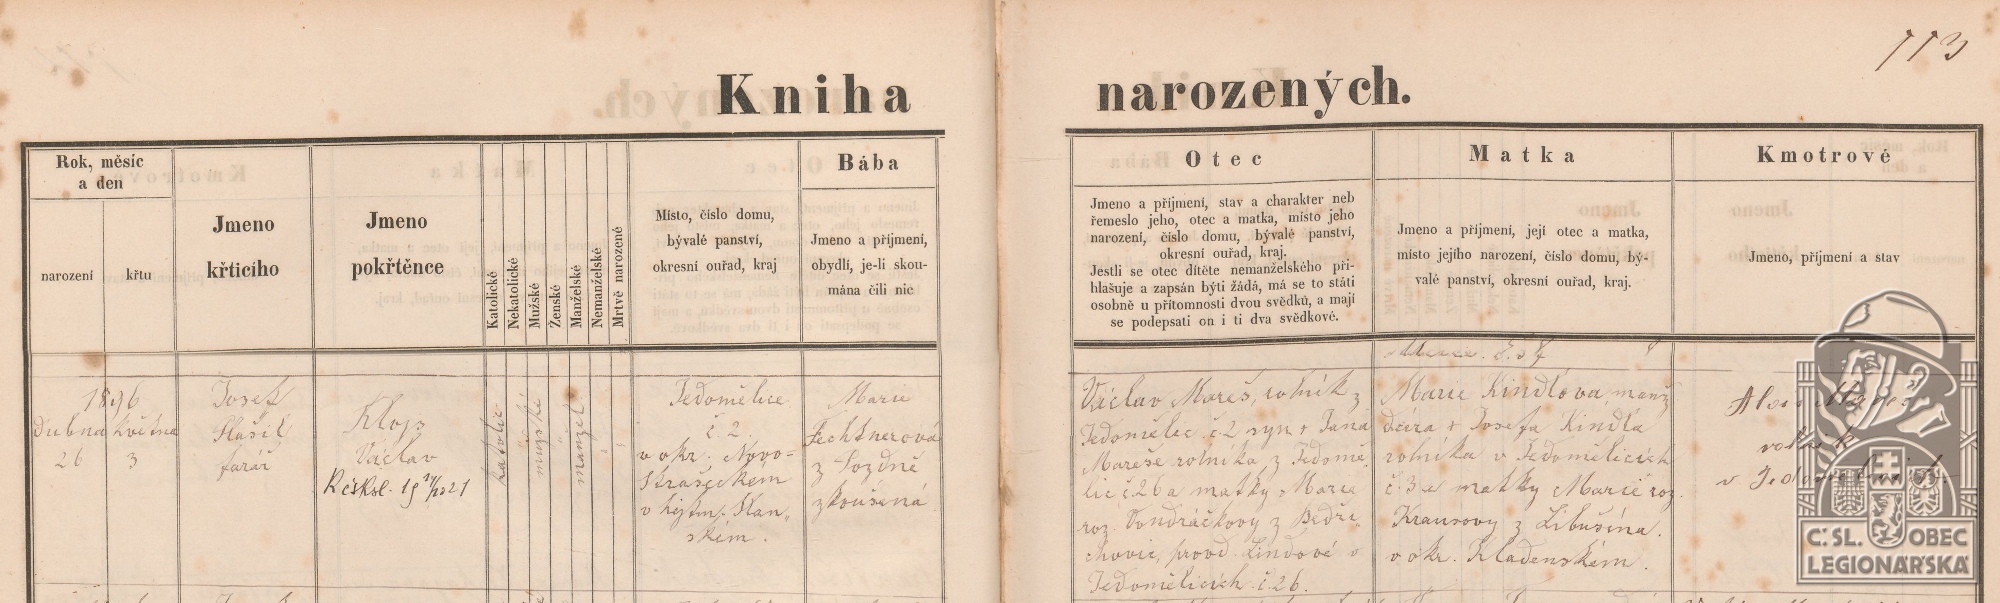 113
Kniha narozených.
Rok, měsíc
a den
narození
křtu
Jmeno
křticího
Jmeno
pokřtěnce
Katolické
Nekatolické
Mužské
Ženské
Manželské
Nemanželské
Mrtvě narozené
Místo, číslo domu,
bývalé panství,
okresní ouřad, kraj
Bába
Jmeno a příjmení,
obydlí, je-li skou-
mána čili nic
Otec
Jmeno a příjmení, stav a charakter neb
řemeslo jeho, otec a matka, místo jeho
narození, číslo domu, bývalé panství,
okresní ouřad, kraj.
Jestli se otec dítěte nemanželského při-
hlašuje a zapsán býti žádá, má se to státi
osobně u přítomnosti dvou svědků, a mají
se podepsati on i ti dva svědkové.
Matka
Jmeno a příjmení, její otec a matka,
místo jejího narození, číslo domu, bý-
valé panství, okresní ouřad, kraj.
Kmotrové
Jmeno, příjmení a stav
1896
dubna
26
května
3
Josef
Hašil
farář
Alojs
Václav
katolic.
mužské
manžel.
Jedomělice
č. 2
v okr. Novo-
Strašeckém
v hejtm. Slan-
ském.
Marie
Fechtnerová
z Lozdně
zkoušená
Václav Mareš, rolník z
Jedomělic č. 2 syn + Jana
Mareše rolníka z Jedomě-
lic č. 26 a matky Marie
roz. Vondráčkovy z Bedři-
chovic, provd. Lindové v
Jedomělicích č. 26.
Marie Kindlova, manž
dcera + Josefa Kindla
rolníka v Jedomělicích
č. 3 a matky Marie roz.
Krausovy z Libušína
v okr. Kladenském.
Alois
rolník
v Jedomělicích.
Č.SL. OBEC
LEGIONÁŘSKÁ